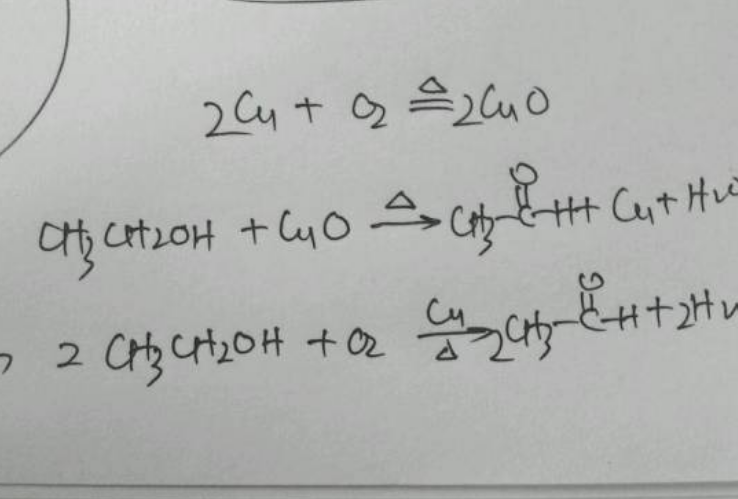 2Cu + O2 ≜ 2CuO
CH3CH2OH + CuO →(△) CH3-C(=O)-H + Cu + H
2 CH3CH2OH + O2 →(Cu/△) 2CH3-C(=O)-H + 2H